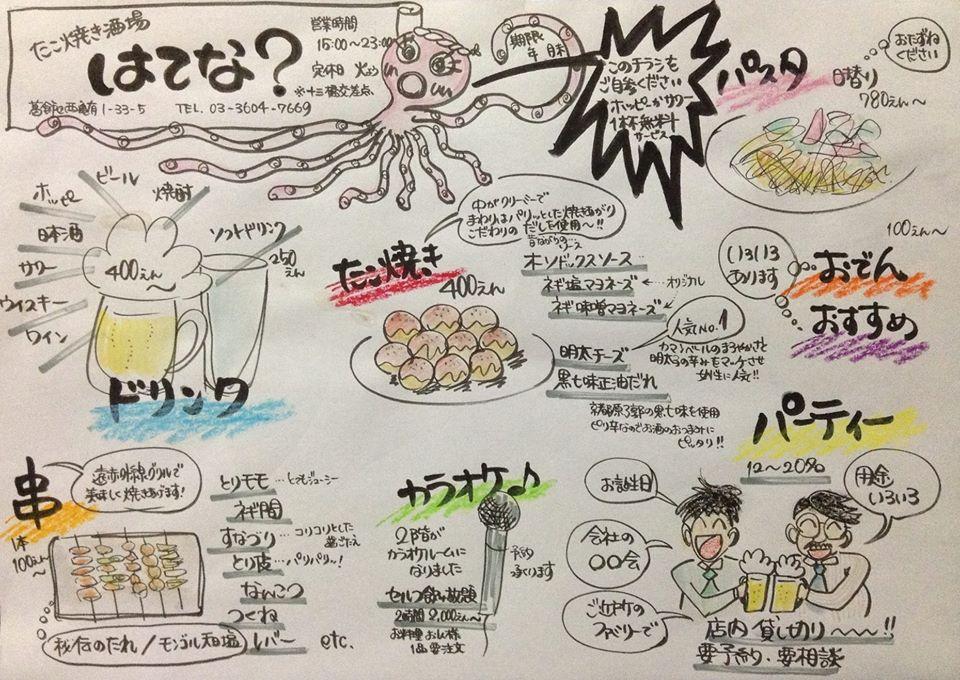 たこ焼き酒場
はてな?
営業時間
15:00〜23:00
定休日 火よう
※十三橋交差点、
葛飾区西亀有1-33-5 TEL. 03-3604-7669
期限
年 月末
このチラシを
ご自参ください
ホッピーかサワー
1杯無料
サービス
パスタ
日替り
780えん〜
おたずね
ください
ビール
ホッピー
焼酎
日本酒
サワー
ウィスキー
ワイン
400えん
ソフトドリンク
250えん
ドリンク
中がクリーミーで
まわりはパリッとした焼きあがり
こだわりのだしを使用〜!!
たこ焼き
400えん
昔ながらのソース
オーソドックスソース
ネギ塩マヨネーズ
ネギ味噌マヨネーズ
オリジナル
人気No.1
明太チーズ
カマンベールのまろやかさと
明太子の辛みをマッチさせ
女性に人気!!
黒七味正油だれ
京都原了郭の黒七味を使用
ピリ辛なのでお酒のおつまみに
ピッタリ!!
100えん〜
いろいろ
あります
おでん
おすすめ
パーティー
12〜20名
お誕生日
会社の
〇〇会
ご近所の
ファミリーで
用途
いろいろ
店内貸し切り〜〜!!
要予約・要相談
串
1本
100えん〜
遠赤外線グリルで
美味しく焼きあげます!
秘伝のたれ/モンゴル天日塩
とりモモ…とってもジューシー
ネギ間
すなづり…コリコリとした
歯ごたえ
とり皮…パリパリ〜!
なんこつ
つくね
レバー etc.
カラオケ♪
2階が
カラオケルームに
なりました
予約
承ります
セルフ飲み放題
2時間 2,000えん〜
お料理お一人様
1品要注文